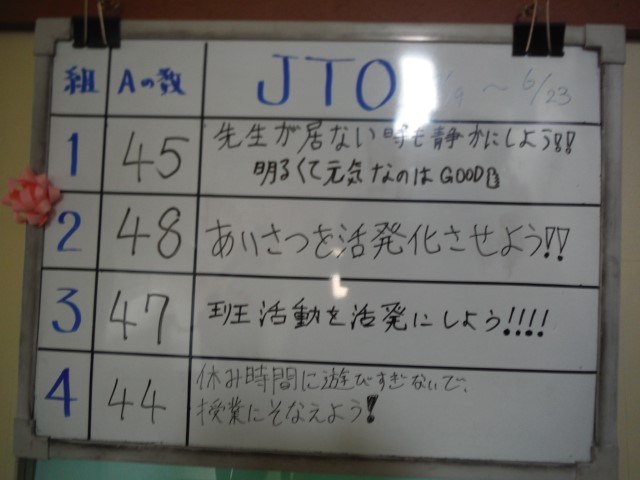 組 Aの数 JTO /9 〜 6/23
1 45 先生が居ない時も静かにしよう!!
明るくて元気なのはGOOD
2 48 あいさつを活発化させよう!!
3 47 班活動を活発にしよう!!!!
4 44 休み時間に遊びすぎないで、
授業にそなえよう!